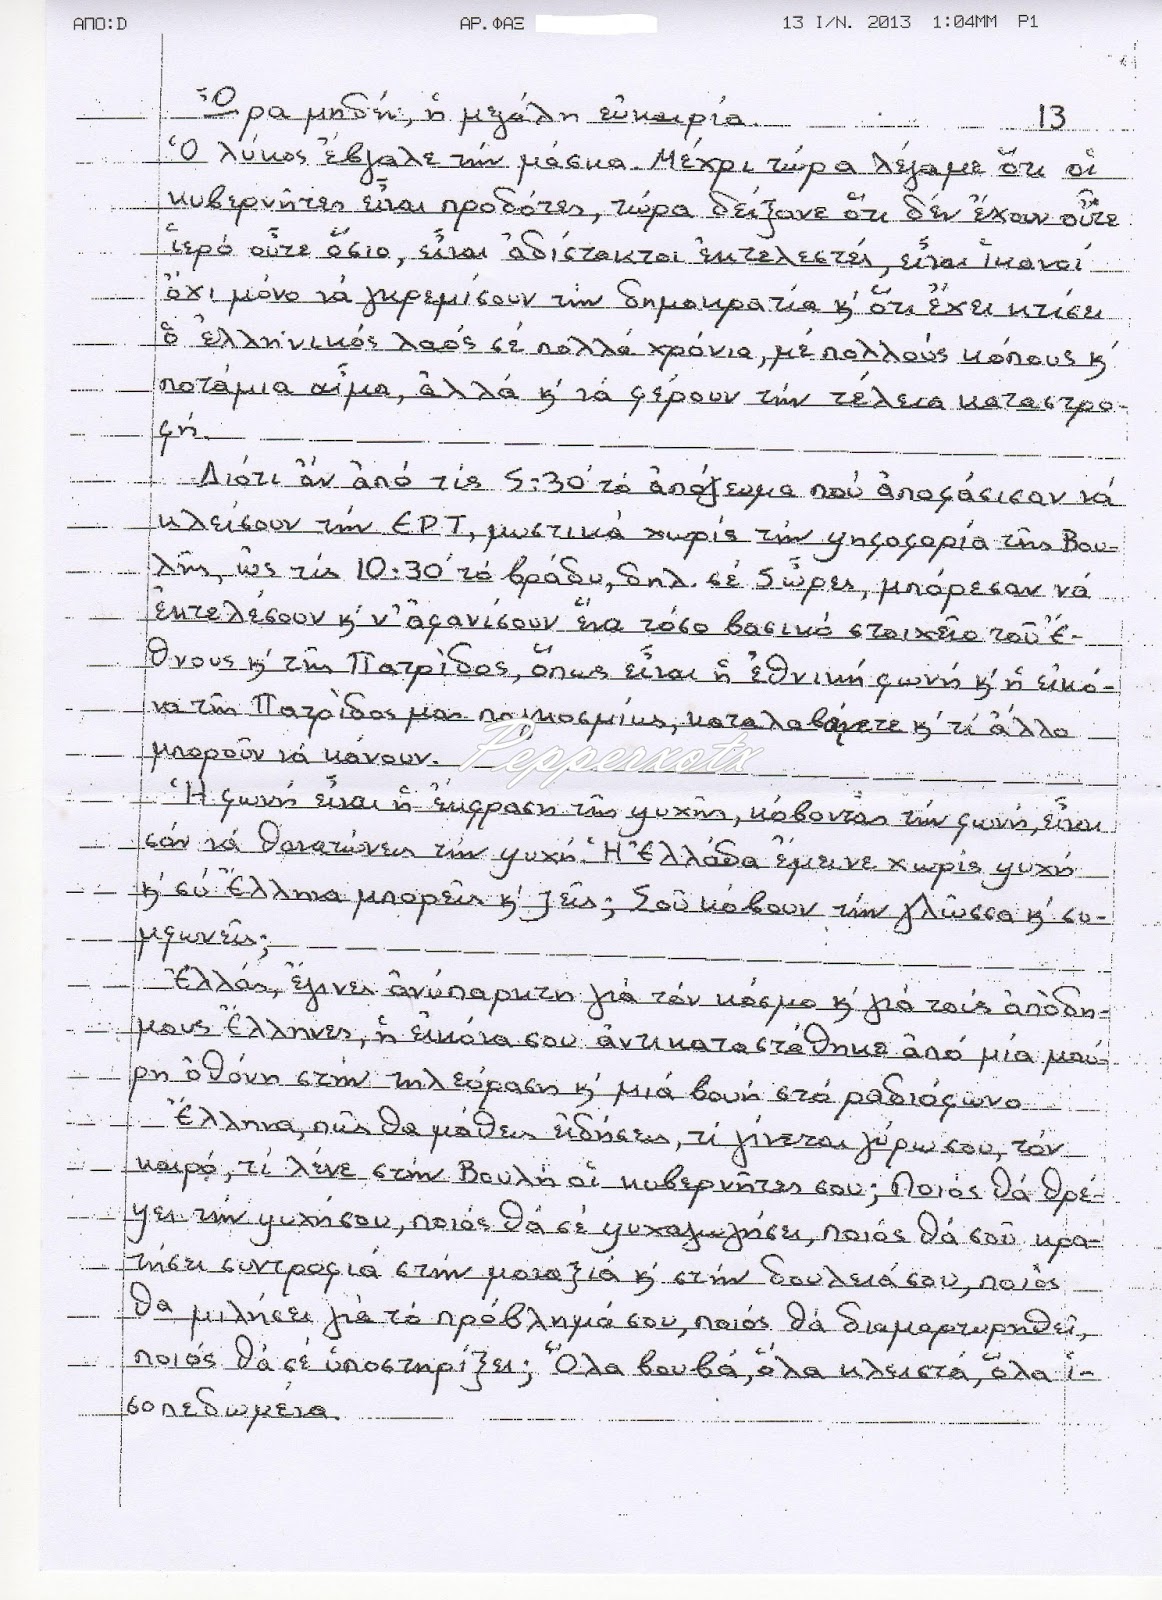 ΑΠΟ:D ΑΡ.ΦΑΞ 13 Ι/Ν. 2013 1:04ΜΜ P1
Ὥρα μηδέν, ἡ μεγάλη εὐκαιρία. 13
Ὁ λύκος ἔβγαλε τήν μάσκα. Μέχρι τώρα λέγαμε ὅτι οἱ
κυβερνῆτες εἶναι προδότες, τώρα δείξανε ὅτι δέν ἔχουν οὔτε
ἱερό οὔτε ὅσιο, εἶναι ἀδίστακτοι ἐκτελεστές, εἶναι ἱκανοί
ὄχι μόνο νά γκρεμίσουν τήν δημοκρατία κ' ὅτι ἔχει κτίσει
ὁ ἑλληνικός λαός σέ πολλά χρόνια, μέ πολλούς κόπους κ'
ποτάμια αἷμα, ἀλλά κ' νά φέρουν τήν τέλεια καταστρο-
φή.
Διότι ἄν ἀπό τίς 5:30' τό ἀπόγευμα πού ἀποφάσισαν νά
κλείσουν τήν ΕΡΤ, μυστικά χωρίς τήν ψηφοφορία τῆς Βου-
λῆς, ὡς τίς 10:30' τό βράδυ, δηλ. σέ 5 ὧρες, μπόρεσαν νά
ἐκτελέσουν κ' ν' ἀφανίσουν ἕνα τόσο βασικό στοιχεῖο τοῦ Ἔ-
θνους κ' τῆς Πατρίδος, ὅπως εἶναι ἡ ἐθνική φωνή κ' ἡ εἰκό-
να τῆς Πατρίδος μας παγκοσμίως, καταλαβαίνετε κ' τί ἄλλο
μποροῦν νά κάνουν.
Pepperxotx
Ἡ φωνή εἶναι ἡ ἔκφραση τῆς ψυχῆς, κόβοντας τήν φωνή, εἶναι
σάν νά θανατώνεις τήν ψυχή. Ἡ Ἑλλάδα ἔμεινε χωρίς ψυχή
κ' σύ Ἕλληνα μπορεῖς κ' ζεῖς; Σοῦ κόβουν τήν γλῶσσα κ' συ-
μφωνεῖς;
Ἑλλάς, ἔγινες ἀνύπαρκτη γιά τόν κόσμο κ' γιά τούς ἀπόδη-
μους Ἕλληνες, ἡ εἰκόνα σου ἀντικαταστάθηκε ἀπό μία μαύ-
ρη ὀθόνη στήν τηλεόραση κ' μιά βουή στό ραδιόφωνο
Ἕλληνα, πῶς θα μάθεις εἰδήσεις, τί γίνεται γύρω σου, τόν
καιρό, τί λένε στήν Βουλή οἱ κυβερνῆτες σου; Ποιός θά θρέ-
ψει τήν ψυχή σου, ποιός θά σέ ψυχαγωγήσει, ποιός θά σοῦ κρα-
τήσει συντροφιά στήν μοναξιά κ' στήν δουλειά σου, ποιός
θα μιλήσει γιά τό πρόβλημά σου, ποιός θά διαμαρτυρηθεῖ,
ποιός θά σέ ὑποστηρίξει; Ὅλα βουβά, ὅλα κλειστά, ὅλα ἰ-
σοπεδωμένα.